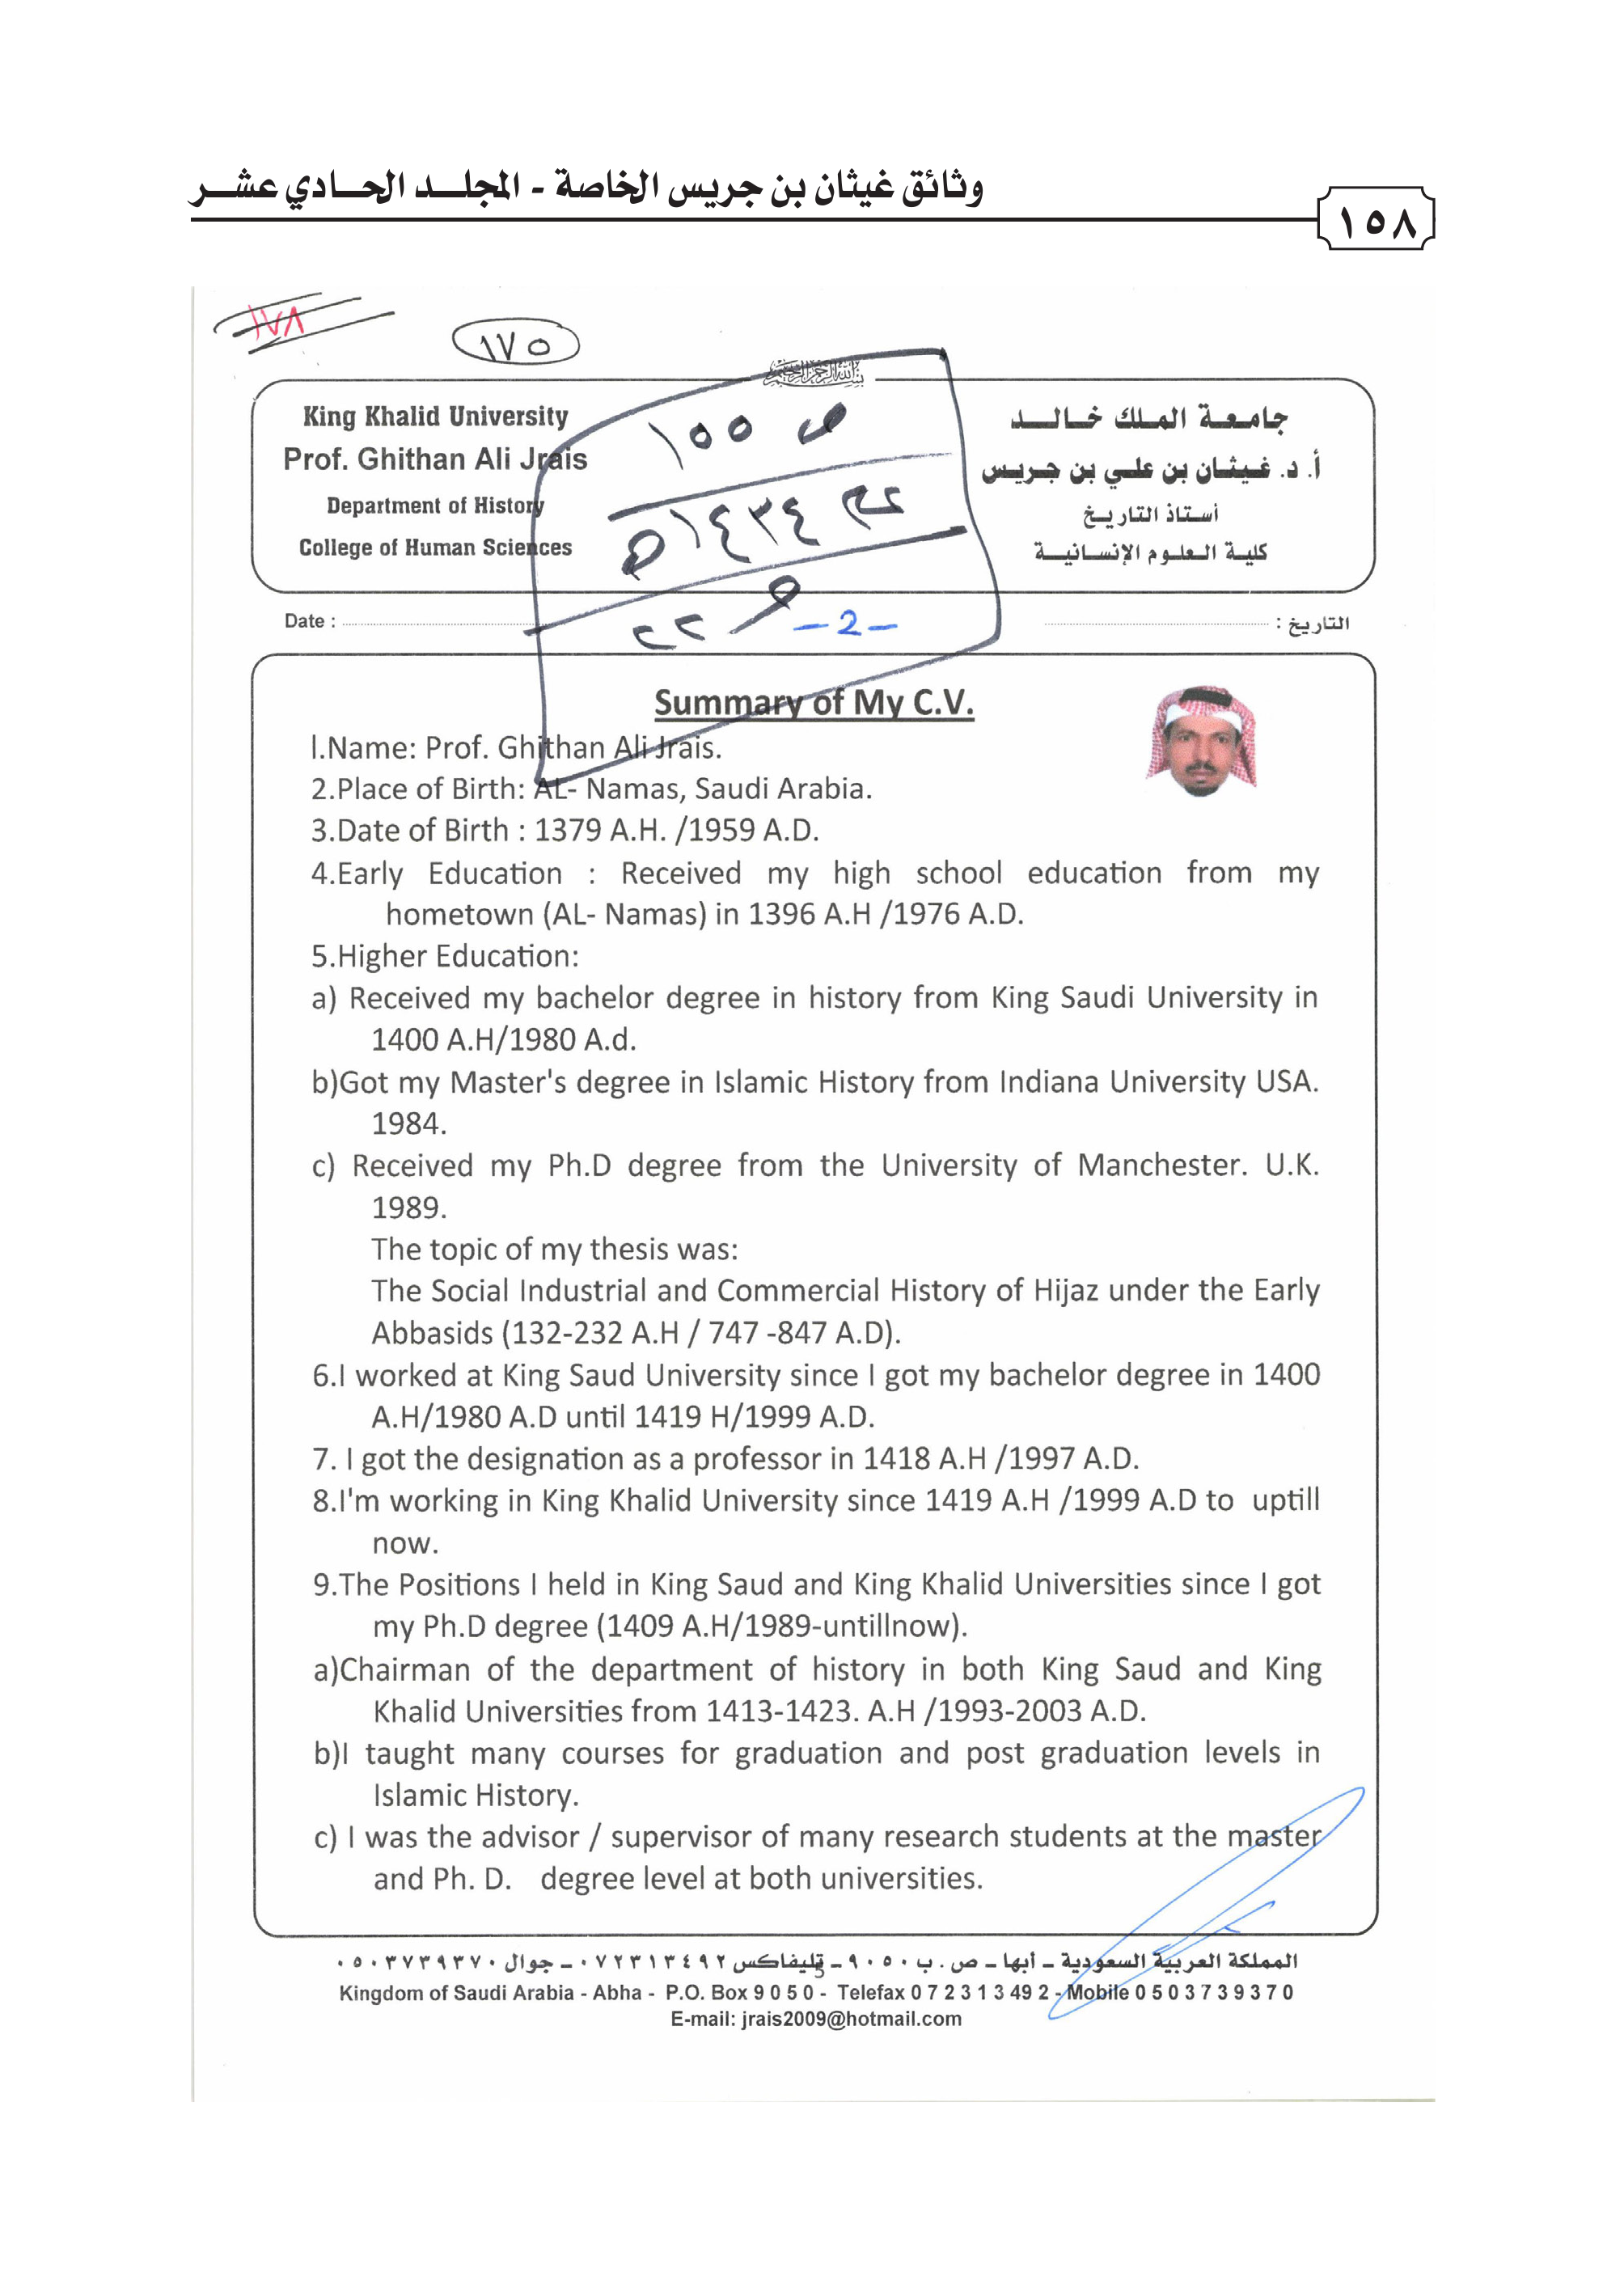 وثائق غيثان بن جريس الخاصة - المجلد الحادي عشر
١٥٨
١٧٨
١٧٥
King Khalid University
Prof. Ghithan Ali Jrais
Department of History
College of Human Sciences
جامعة الملك خالد
أ. د. غيثان بن علي بن جريس
أستاذ التاريخ
كلية العلوم الإنسانية
ص ١٥٥
١٤٣٤ هـ
٢٢
-2-
Date :
التاريخ :
Summary of My C.V.
l.Name: Prof. Ghithan Ali Jrais.
2.Place of Birth: AL- Namas, Saudi Arabia.
3.Date of Birth : 1379 A.H. /1959 A.D.
4.Early Education : Received my high school education from my
hometown (AL- Namas) in 1396 A.H /1976 A.D.
5.Higher Education:
a) Received my bachelor degree in history from King Saudi University in
1400 A.H/1980 A.d.
b)Got my Master's degree in Islamic History from Indiana University USA.
1984.
c) Received my Ph.D degree from the University of Manchester. U.K.
1989.
The topic of my thesis was:
The Social Industrial and Commercial History of Hijaz under the Early
Abbasids (132-232 A.H / 747 -847 A.D).
6.I worked at King Saud University since I got my bachelor degree in 1400
A.H/1980 A.D until 1419 H/1999 A.D.
7. I got the designation as a professor in 1418 A.H /1997 A.D.
8.I'm working in King Khalid University since 1419 A.H /1999 A.D to uptill
now.
9.The Positions I held in King Saud and King Khalid Universities since I got
my Ph.D degree (1409 A.H/1989-untillnow).
a)Chairman of the department of history in both King Saud and King
Khalid Universities from 1413-1423. A.H /1993-2003 A.D.
b)I taught many courses for graduation and post graduation levels in
Islamic History.
c) I was the advisor / supervisor of many research students at the master
and Ph. D. degree level at both universities.
المملكة العربية السعودية – أبها – ص . ب ٩٠٥٠ – تليفاكس ٠٧٢٣١٣٤٩٢ – جوال ٠٥٠٣٧٣٩٣٧٠
Kingdom of Saudi Arabia - Abha - P.O. Box 9 0 5 0 - Telefax 0 7 2 3 1 3 49 2 - Mobile 0 5 0 3 7 3 9 3 7 0
E-mail: jrais2009@hotmail.com